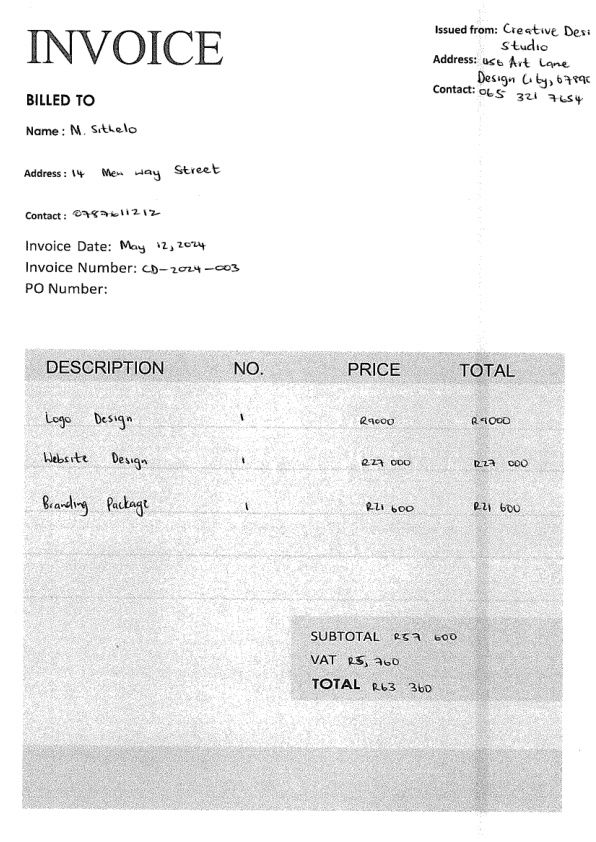 INVOICE
Issued from: Creative Desi
Studio
Address: 456 Art Lane
Design City, 6789
Contact: 065 321 7654
BILLED TO
Name: M. Sithelo
Address: 14 way Street
Contact: 0787611212
Invoice Date: May 12, 2024
Invoice Number: CD-2024-003
PO Number:
DESCRIPTION NO. PRICE TOTAL
Logo Design 1 R9000 R9000
Website Design 1 R27 000 R27 000
Branding Package 1 R21 600 R21 600
SUBTOTAL R57 600
VAT R5, 760
TOTAL R63 360